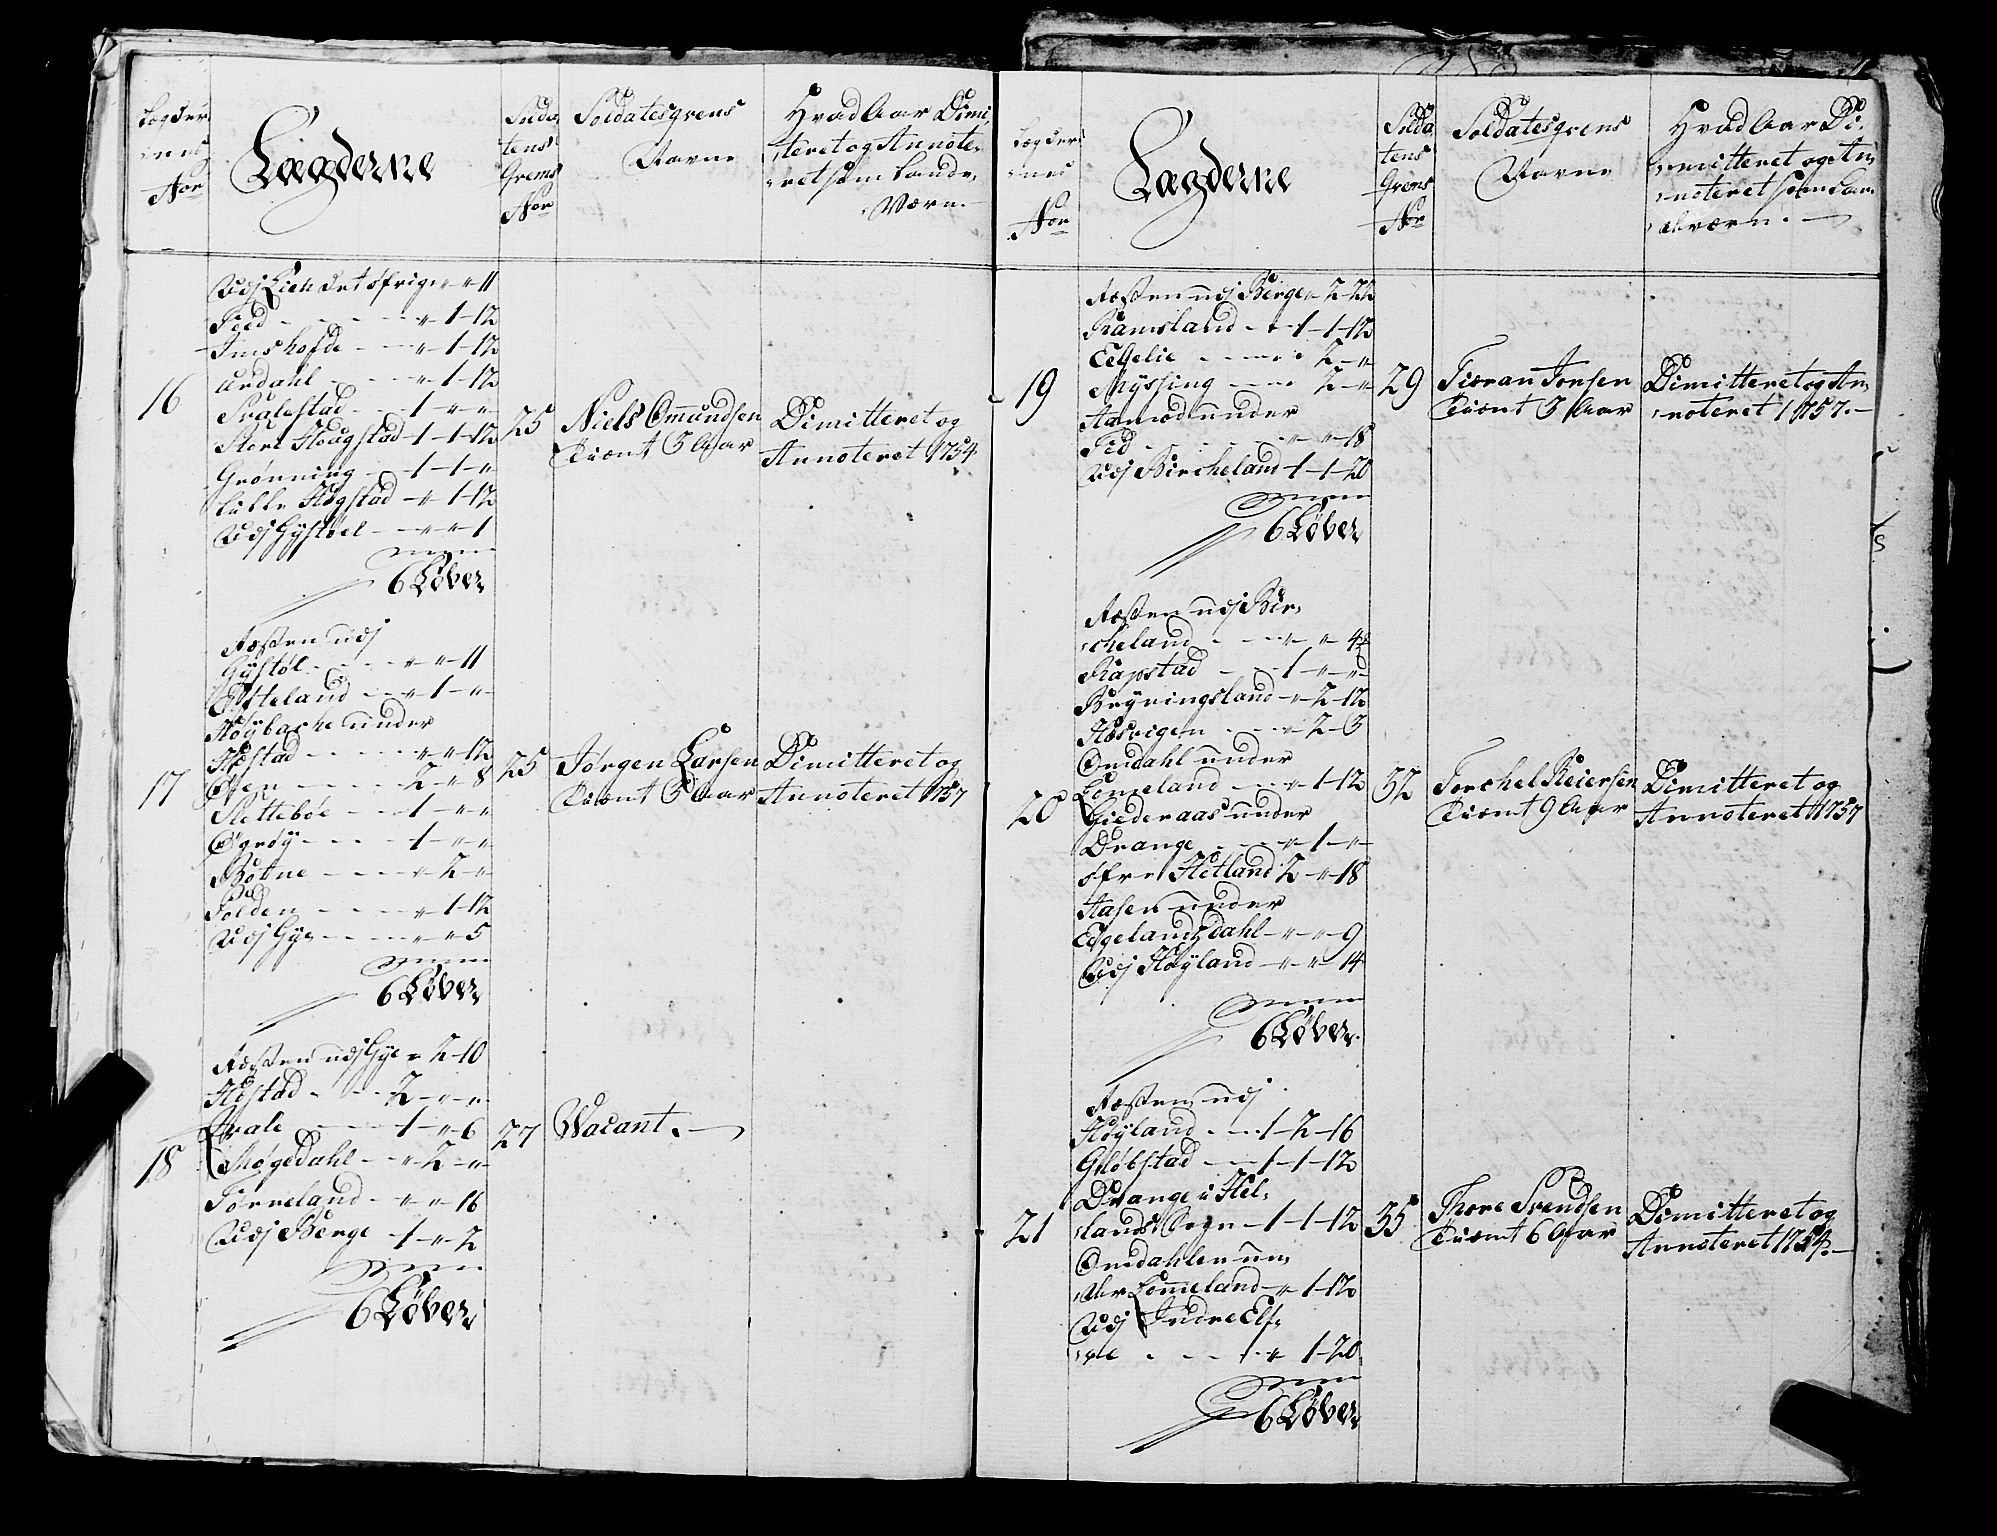 Lægder
nes
No
Lægderne
Solda
tens
Grens
No
Soldatesgrens
Navne
Hvad Aar Dimi-
teret og Annote-
ret som Lande-
Værn.
Udj Lien det øfrige " " 11
Fied " 1 - 12
Imshofde " 1 - 12
Ardahl " 1 - 12
Svalestad 1 " "
Store Hougstad 1 - 1 - 12
Grønning 1 - 1 - "
Lille Hogstad " 1 - 12
Udj Gystøel " " 1
6 Løber
16
25
Niels Omundsen
Tiænt 5 Aar
Dimitteret og
Annoteret 1754
Resten udj
Gystøl " " 11
Efteland " 1 - "
Høybacke under
Hæstad " " 12
Øfen 2 " 8
Slettebøe 1 " "
Øgrøy 1 " "
Botne " 2 - "
Folden " 1 - 12
Udj Gye " " 5
6 Løber
17
25
Jørgen Larsen
Tiænt 5 Aar
Dimitteret og
Annoteret 1757
Resten udj Gye " 2 - 10
Hestad 2 " "
Hvale 1 " 6
Møgedahl " 2 - "
Tørneland " " 16
Udj Berge 1 " 2
6 Løber
18
27
Vacant.
Lægder
nes
No
Lægderne
Solda
tens
Grens
No
Soldatesgrens
Navne
Hvad Aar Di-
mitteret og An-
noteret som Lan-
deværn.
Resten udj Berge " 2 - 22
Ramsland 1 - 1 - 12
Eegelie " 2 - "
Myssing " 2 - "
Aamod under
Fid " " 18
Udj Bircheland 1 - 1 - 20
6 Løber
19
29
Tieran Jonsen
Tiænt 5 Aar
Dimitteret og An-
noteret 1757.
Resten udj Bir-
cheland " " 4
Rapstad 1 " "
Bryningsland " 2 - 12
Høsvigen " 2 - 3
Omdahl under
Lomeland " 1 - 12
Giederaas under
Drange " 1 - "
øfre Hetland 2 " 18
Aasen under
Eegelandsdahl " " 9
Udj Høyland " " 14
6 Løber
20
32
Torchel Reiersen
Tiænt 9 Aar
Dimitteret og
Annoteret 1757
Resten udj
Høyland 1 - 2 - 16
Gløbstad 1 - 1 - 12
Drange i Hel-
lands Sogn 1 - 1 - 12
Omdahlen un-
der Lomeland " 1 - 12
Udj Indre Elf-
" 1 - 20
6 Løber
21
35
Thore Svendsen
Tiænt 6 Aar
Dimitteret og
Annoteret 1754.